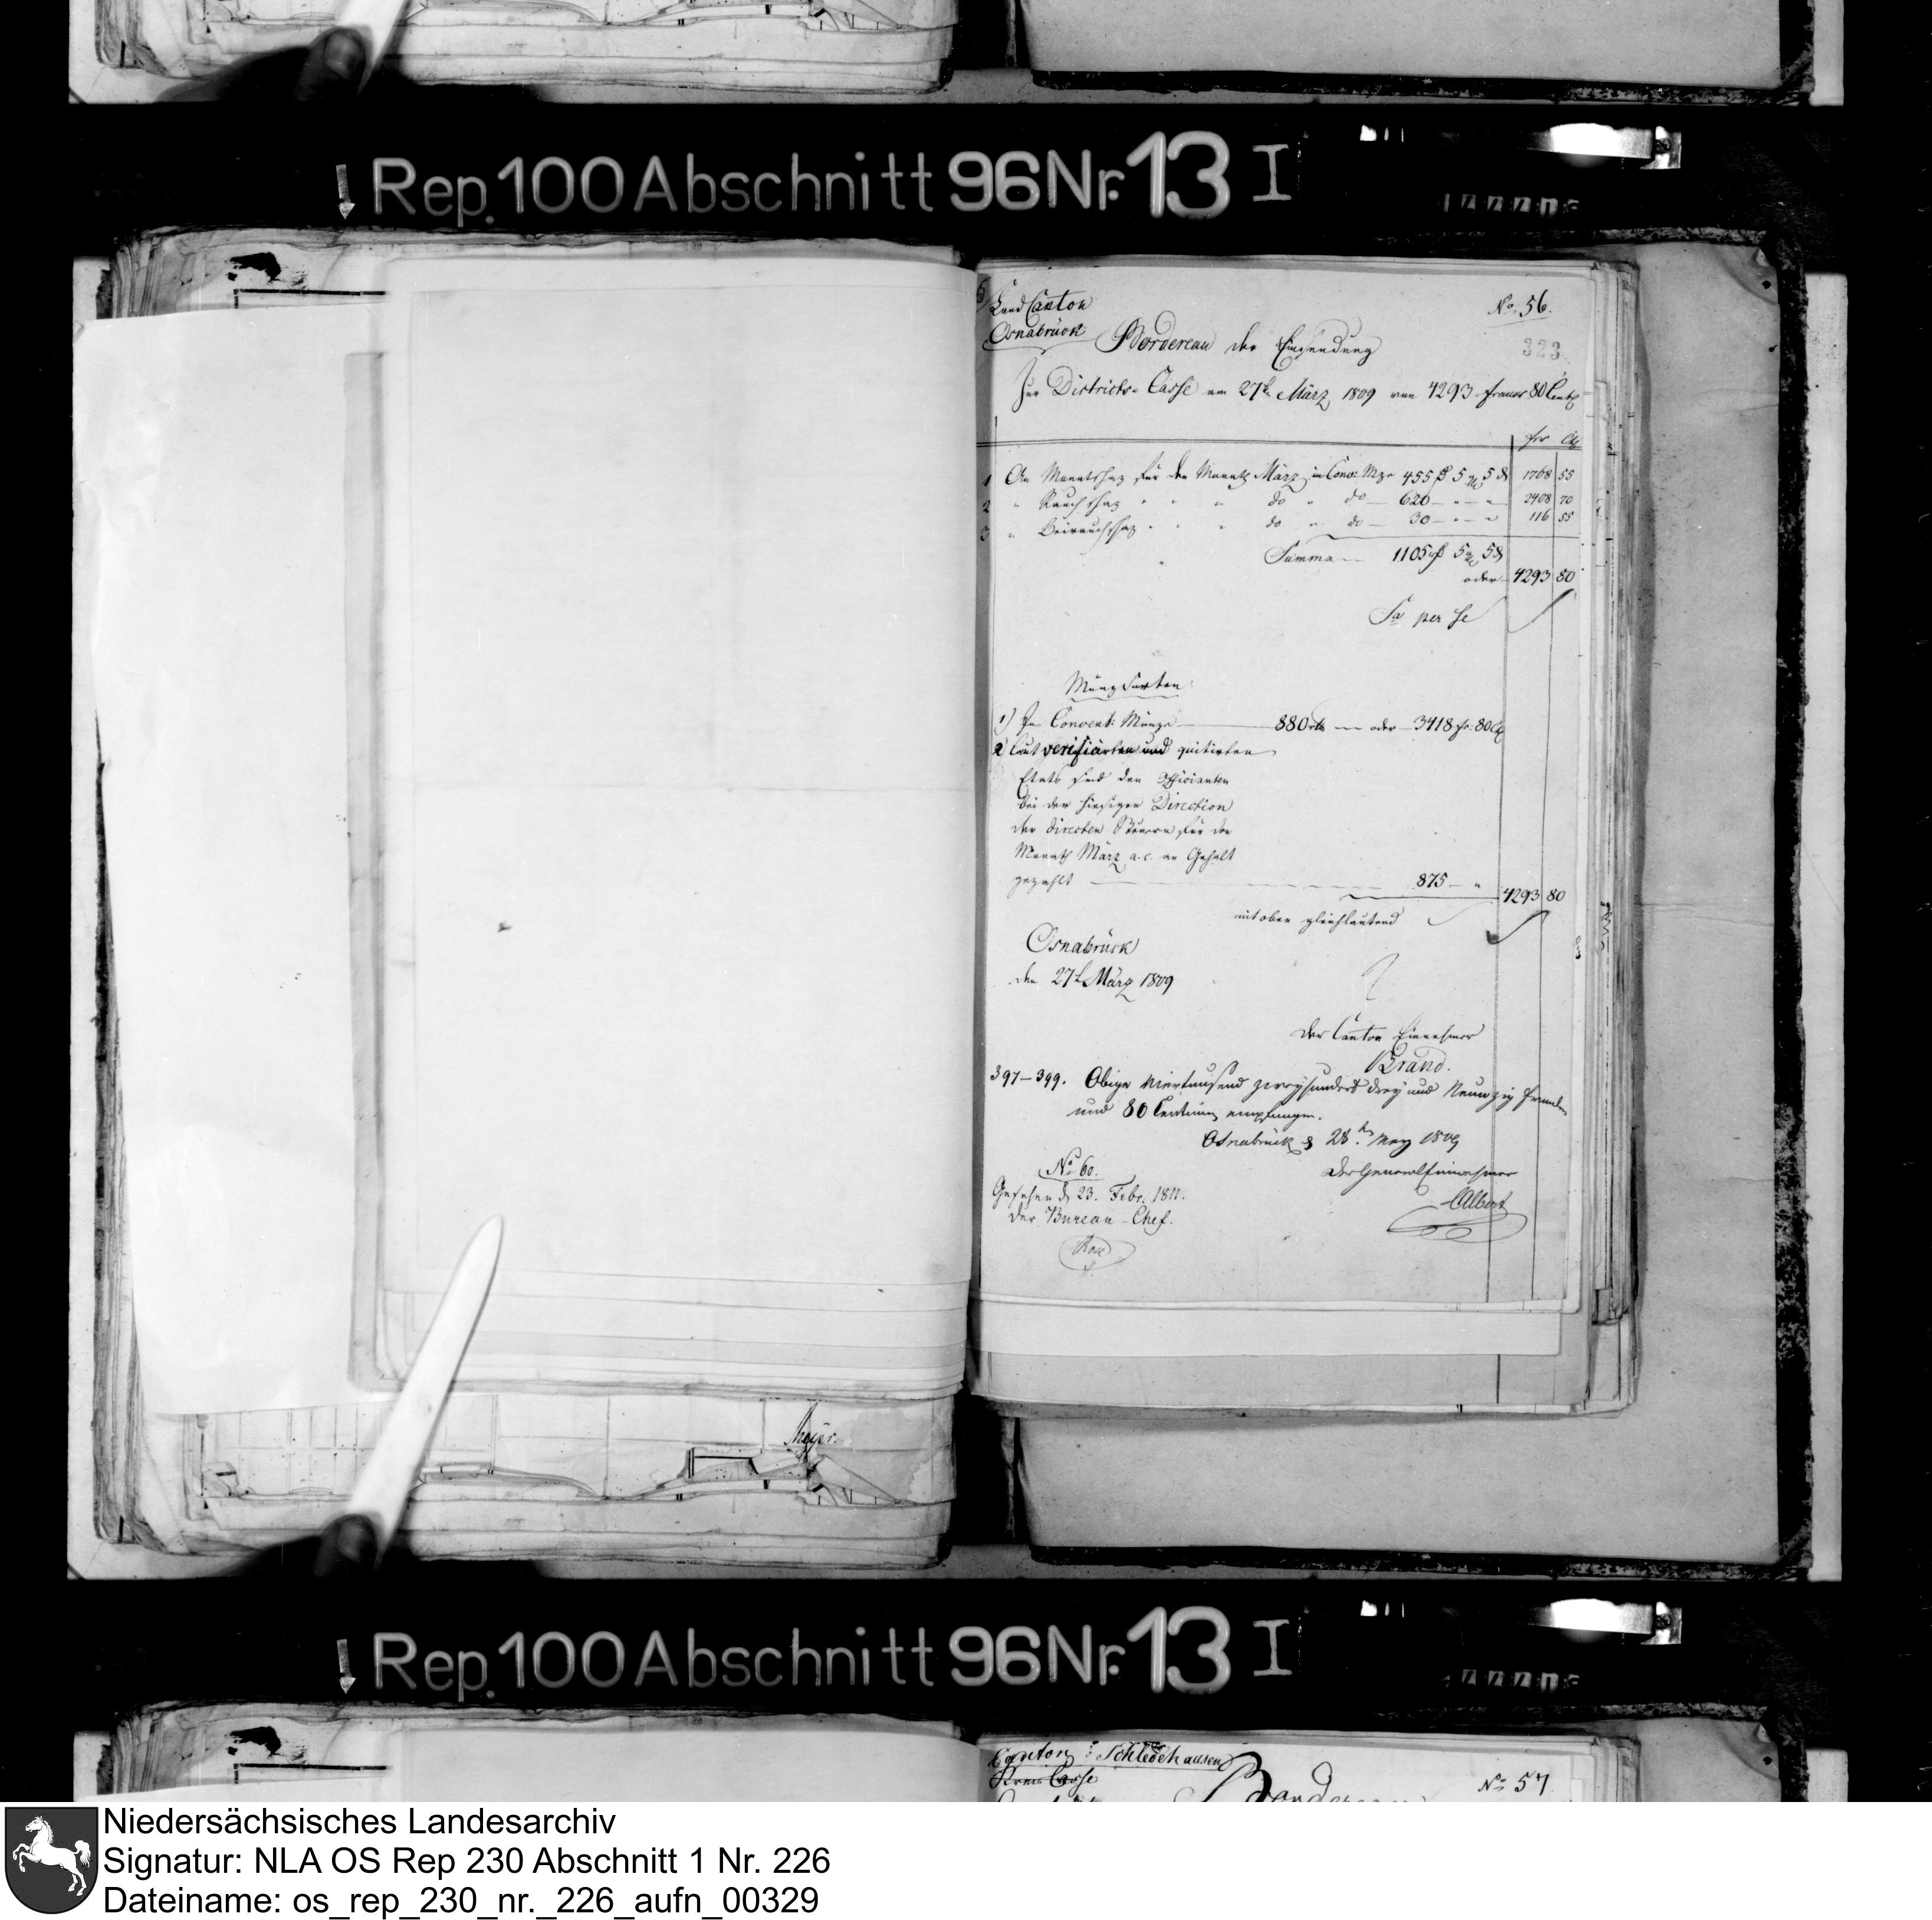 Rep. 100 Abschnitt 96 Nr. 13 I
Land Canton
Osnabrück
No. 56.
323
Bordereau der Einsendung
Zur Districts-Casse am 27t März 1809 von 4293 Francs 80 Cent
frs Cts
1 An Monatschaz für den Monath März in Conv: Mze 455 5 5 1768 55
2 " Rauchschaz " " " do " do 620 - " - " 2408 70
3 " Beirauchschaz " " do " do 30 - " - " 116 55
Summa 1105 5 5
oder 4293 80
Sa per se
Münz Sorten
1) In Convent: Münze 880 oder 3418 fr: 80 C
2) Laut verificirten und quitirten
Etats sind den Officianten
bei der hiesigen Direction
der directen Steuern für den
Monath März a. c. an Gehalt
gezahlt 875 - "
4293 80
mit oben gleichlautend
Osnabrück
den 27t März 1809
Der Canton Einnehmer
Brand.
397-399. Obige Viertausend zweyhundert drey und Neunzig Franken
und 80 Centimen empfangen.
Osnabrück d 28 1809
Der General Einnehmer
Albert
No 60.
Gesehen d. 23. Febr. 1811.
Der Bureau-Chef.
Rose
Meyer.
Rep. 100 Abschnitt 96 Nr. 13 I
Canton Schledehausen
No 57
Bordereau
Niedersächsisches Landesarchiv
Signatur: NLA OS Rep 230 Abschnitt 1 Nr. 226
Dateiname: os_rep_230_nr._226_aufn_00329